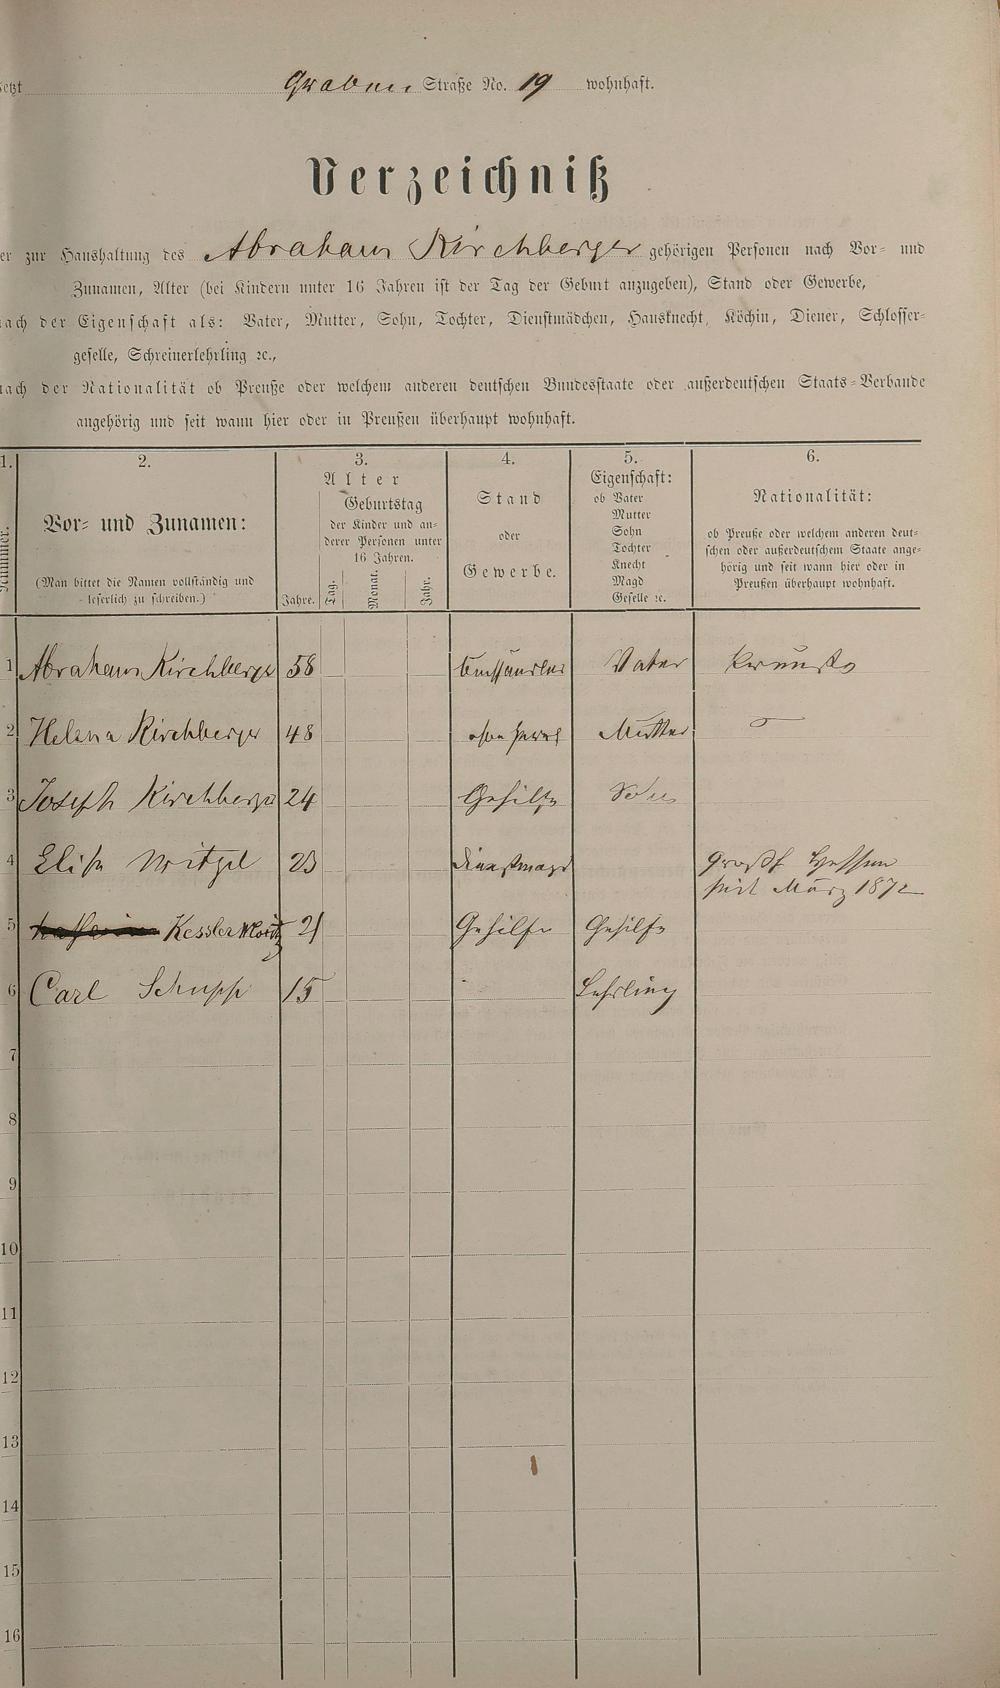 Graben Straße No. 19 wohnhaft.
Verzeichniß
zur Haushaltung des Abraham Kirchberger gehörigen Personen nach Vor- und
Zunamen, Alter (bei Kindern unter 16 Jahren ist der Tag der Geburt anzugeben), Stand oder Gewerbe,
nach der Eigenschaft als: Vater, Mutter, Sohn, Tochter, Dienstmädchen, Hausknecht, Köchin, Diener, Schlosser-
geselle, Schreinerlehrling ꝛc.,
nach der Nationalität ob Preuße oder welchem anderen deutschen Bundesstaate oder außerdeutschen Staats-Verbande
angehörig und seit wann hier oder in Preußen überhaupt wohnhaft.
1.
Nummer.
2.
Vor- und Zunamen:
(Man bittet die Namen vollständig und
leserlich zu schreiben.)
3.
Alter
Geburtstag
der Kinder und an-
derer Personen unter
16 Jahren.
Jahre. Tag. Monat. Jahr.
4.
Stand
oder
Gewerbe.
5.
Eigenschaft:
ob Vater
Mutter
Sohn
Tochter
Knecht
Magd
Geselle ꝛc.
6.
Nationalität:
ob Preuße oder welchem anderen deut-
schen oder außerdeutschem Staate ange-
hörig und seit wann hier oder in
Preußen überhaupt wohnhaft.
1 Abraham Kirchberger 58 Vater Preuße
2 Helena Kirchberger 48 Mutter
3 Joseph Kirchberger 24 Gehilfe Sohn
4 Elise Witzel 23 Dienstmagd Großh Hessen
seit März 1872
5 Kessler Moritz 21 Gehilfe Gehilfe
6 Carl Schupp 15 Lehrling
7
8
9
10
11
12
13
14
15
16